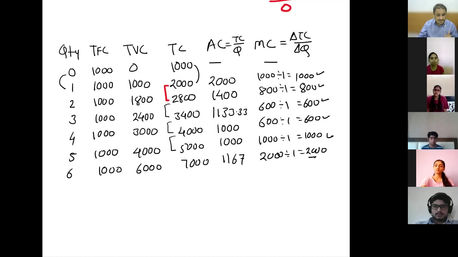 0
Qty TFC TVC TC AC=TC/Q MC=ΔTC/ΔQ
0 1000 0 1000 — —
1 1000 1000 2000 2000 1000÷1=1000
2 1000 1800 2800 1400 800÷1=800
3 1000 2400 3400 1133.33 600÷1=600
4 1000 3000 4000 1000 600÷1=600
5 1000 4000 5000 1000 1000÷1=1000
6 1000 6000 7000 1167 2000÷1=2000